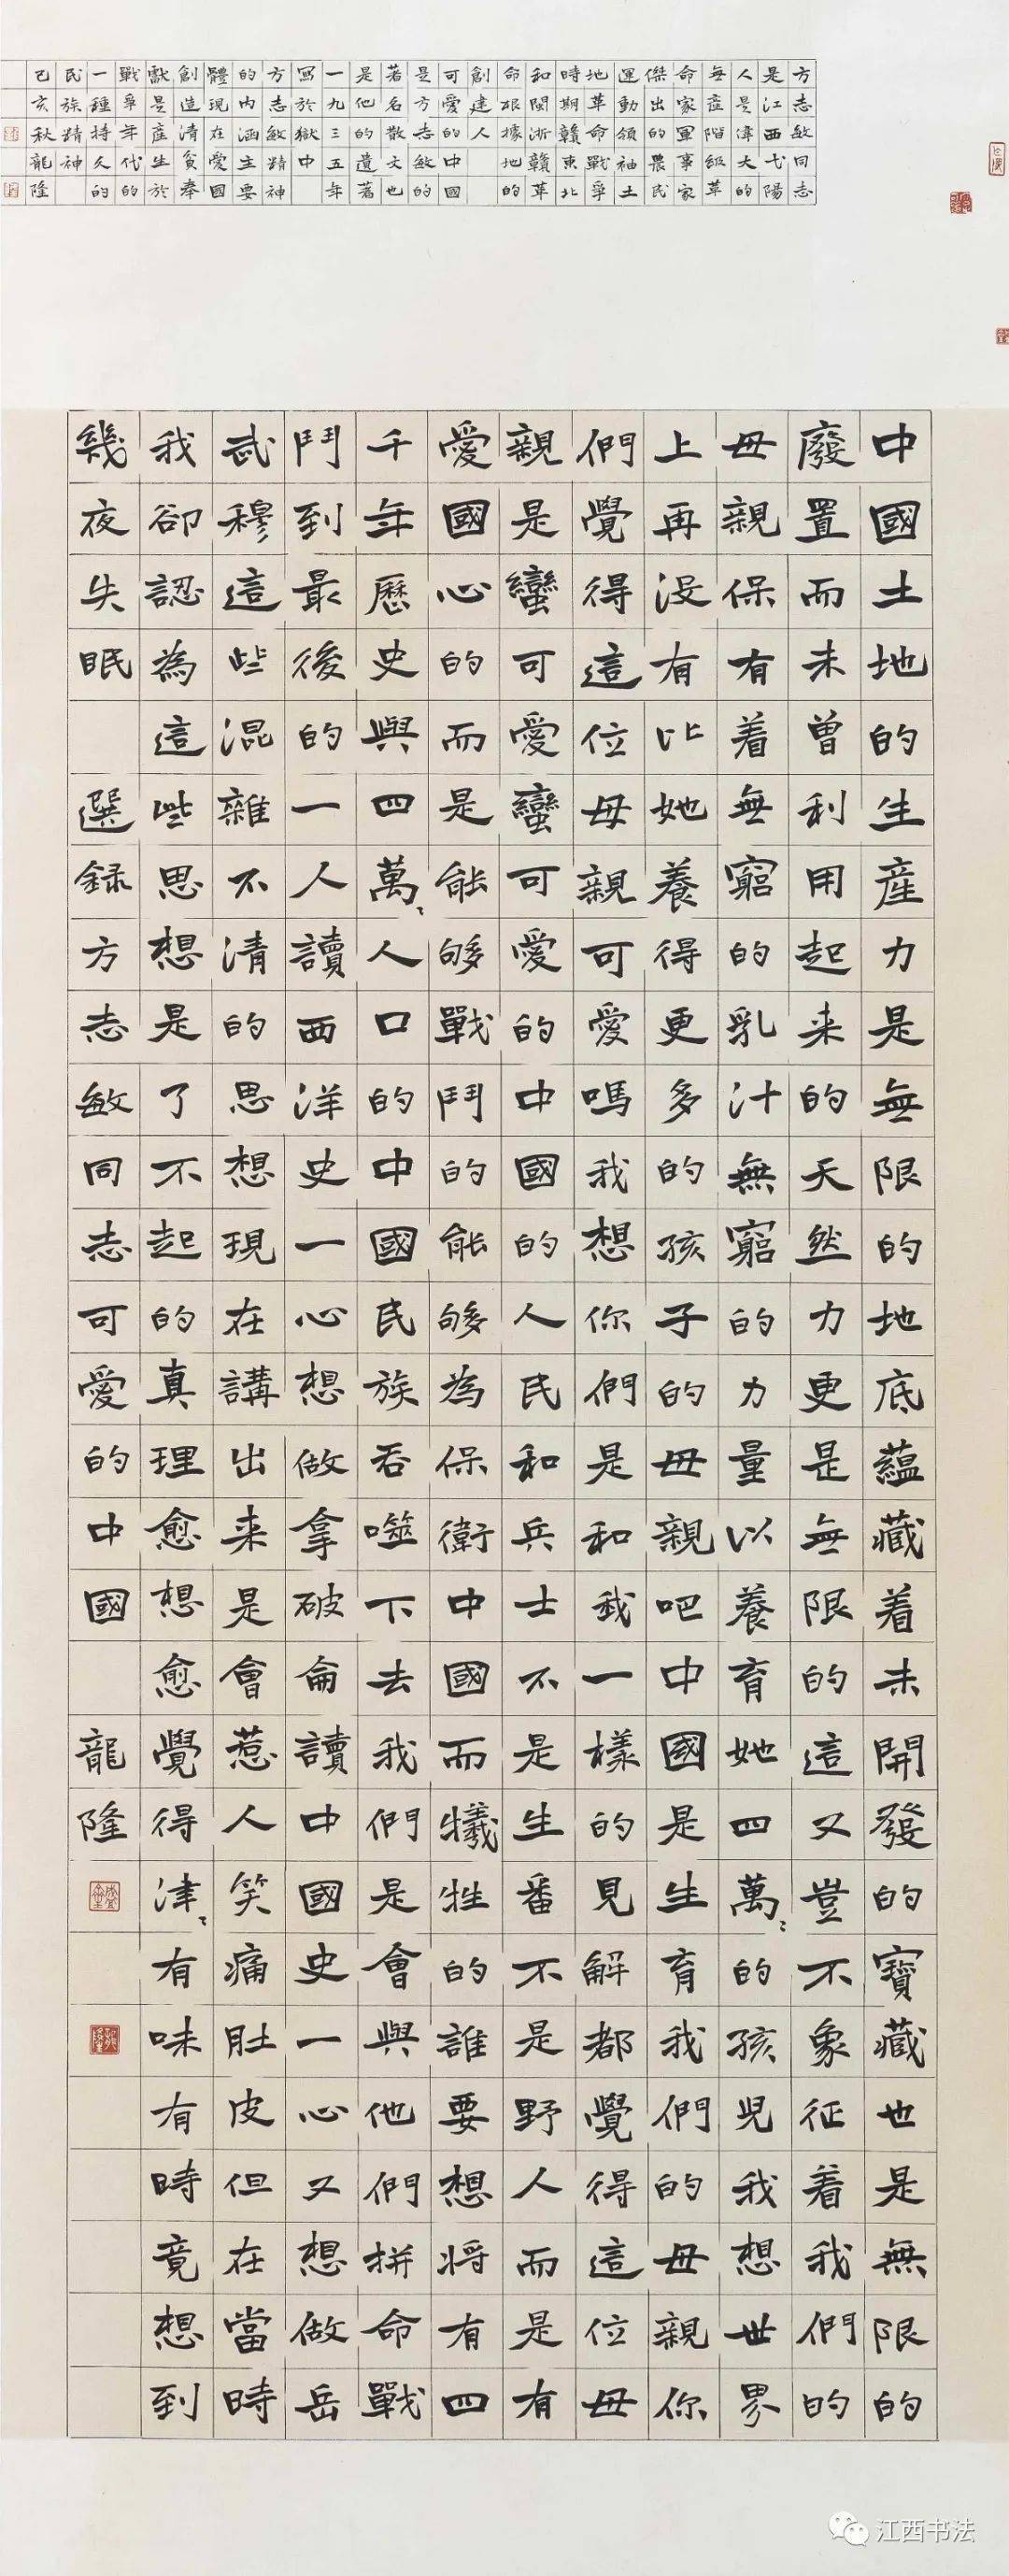 方志敏同志
是江西弋陽
人是偉大的
無産階級革
命家軍事家
傑出的農民
運動領袖土
地革命戰爭
時期贛東北
和閩浙贛革
命根據地的
創建人
可愛的中國
是方志敏的
著名散文也
是他的遺著
一九三五年
寫於獄中
方志敏精神
的内涵主要
體現在愛國
創造清貧奉
獻是産生於
戰爭年代的
一種持久的
民族精神
己亥秋龍隆
中國土地的生産力是無限的地底蘊藏着未開發的寶藏也是無限的
廢置而未曾利用起来的天然力更是無限的這又豈不象征着我們的
母親保有着無窮的乳汁無窮的力量以養育她四萬〻的孩兒我想世界
上再没有比她養得更多的孩子的母親吧中國是生育我們的母親你
們覺得這位母親可愛嗎我想你們是和我一樣的見解都覺得這位母
親是蠻可愛蠻可愛的中國的人民和兵士不是生番不是野人而是有
愛國心的而是能够戰鬥的能够為保衛中國而犧牲的誰要想將有四
千年歷史與四萬〻人口的中國民族吞噬下去我們是會與他們拼命戰
鬥到最後的一人讀西洋史一心想做拿破侖讀中國史一心又想做岳
武穆這些混雜不清的思想現在講出来是會惹人笑痛肚皮但在當時
我卻認為這些思想是了不起的真理愈想愈覺得津〻有味有時竟想到
幾夜失眠 選録方志敏同志可愛的中國 龍隆
江西书法